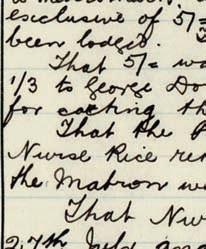 exclusive of 5/=
been lodged.
That 5/= wa
1/3 to George Do
for cacting th
That the P
Nurse Rice ren
the Matron we
That Nur
27th July and